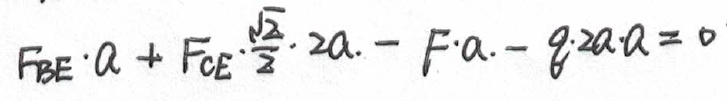 F_{BE}·a + F_{CE}·\frac{\sqrt{2}}{2}·2a. - F·a. - q·2a·a = 0